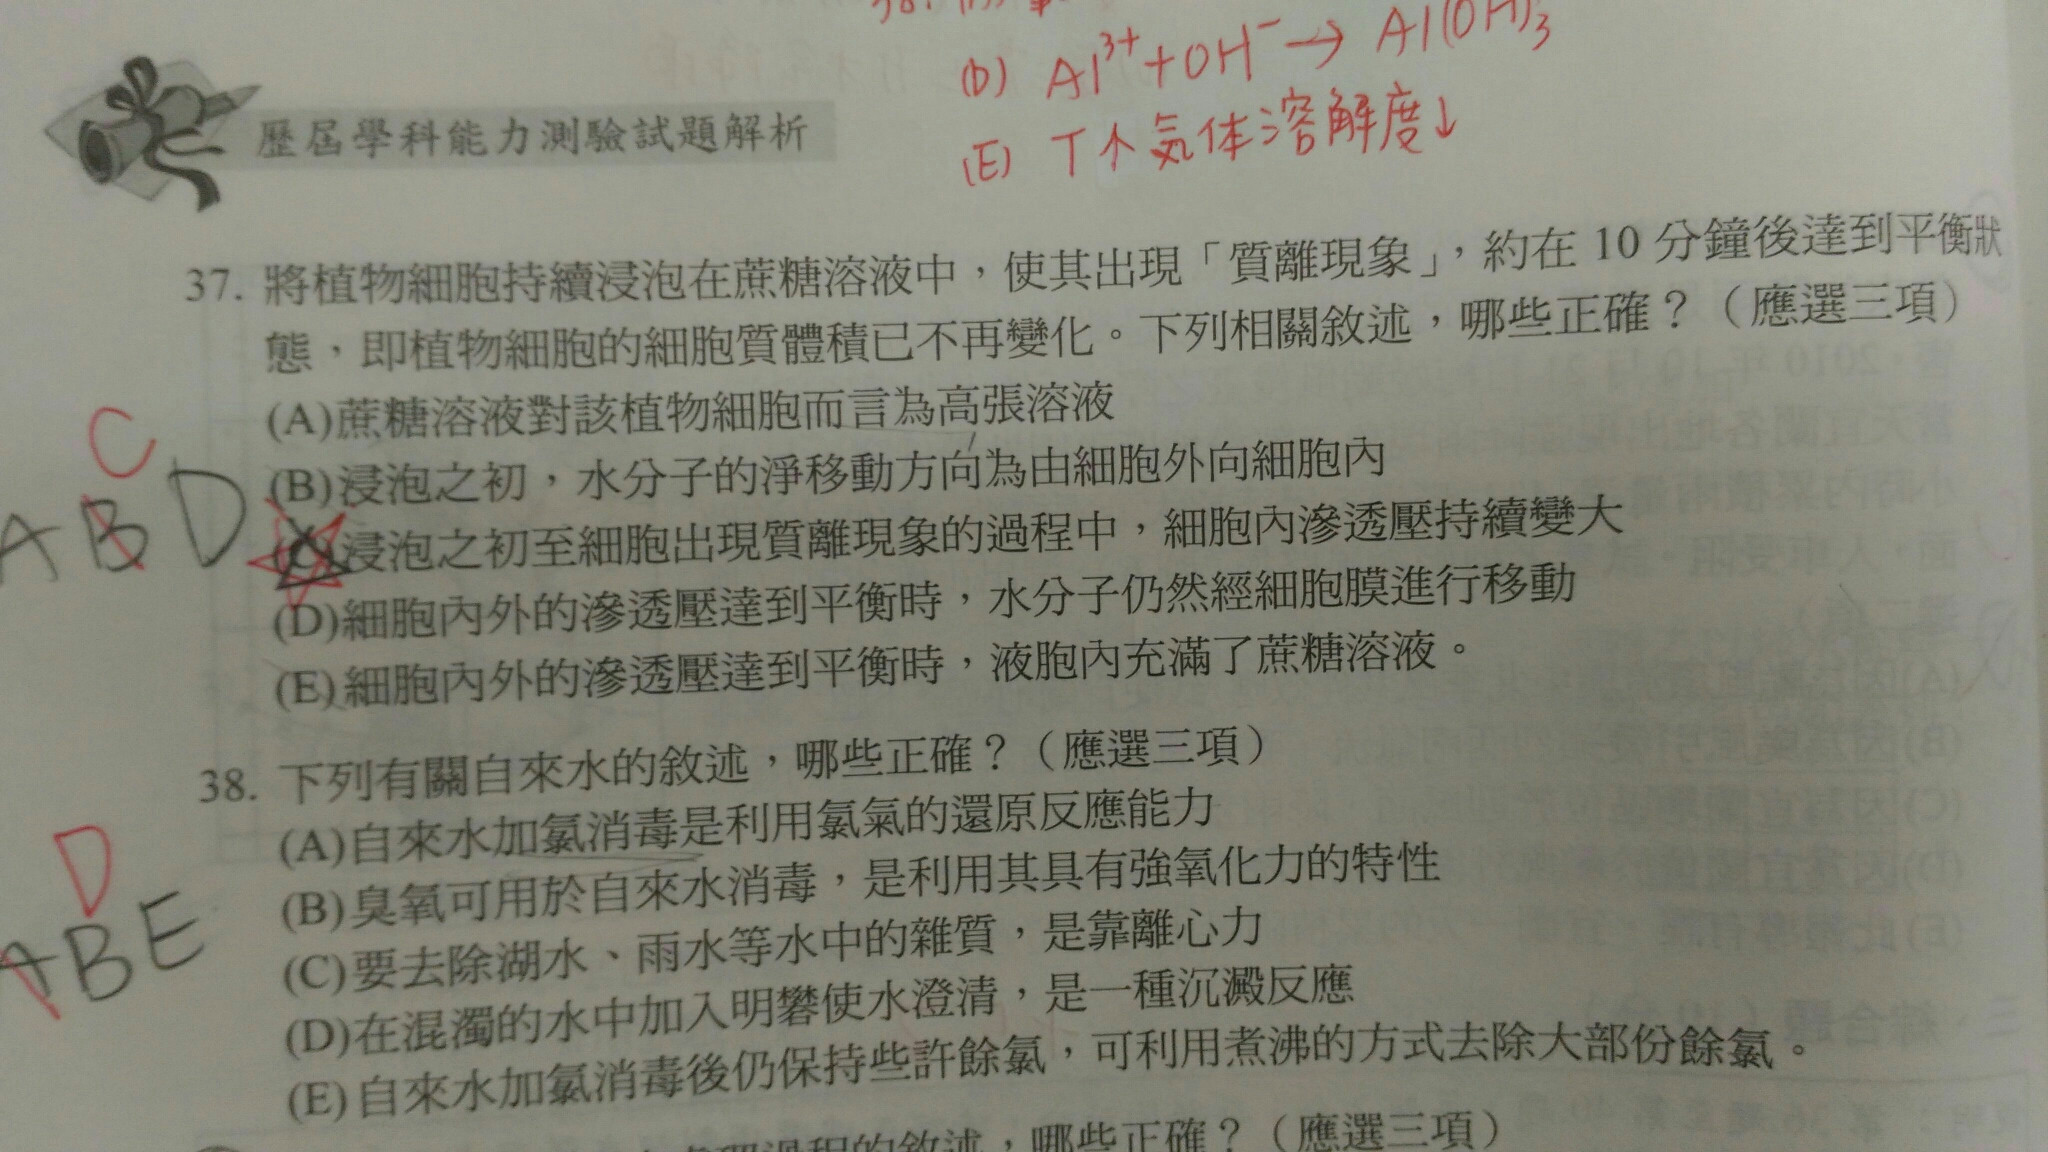 (D) Al³⁺+OH⁻→Al(OH)₃
(E) T↑氣体溶解度↓
歷屆學科能力測驗試題解析
37. 將植物細胞持續浸泡在蔗糖溶液中，使其出現「質離現象」，約在 10 分鐘後達到平衡狀
態，即植物細胞的細胞質體積已不再變化。下列相關敘述，哪些正確？（應選三項）
(A)蔗糖溶液對該植物細胞而言為高張溶液
(B)浸泡之初，水分子的淨移動方向為由細胞外向細胞內
C
ABD
(C)浸泡之初至細胞出現質離現象的過程中，細胞內滲透壓持續變大
(D)細胞內外的滲透壓達到平衡時，水分子仍然經細胞膜進行移動
(E)細胞內外的滲透壓達到平衡時，液胞內充滿了蔗糖溶液。
38. 下列有關自來水的敘述，哪些正確？（應選三項）
(A)自來水加氯消毒是利用氯氣的還原反應能力
D
ABE
(B)臭氧可用於自來水消毒，是利用其具有強氧化力的特性
(C)要去除湖水、雨水等水中的雜質，是靠離心力
(D)在混濁的水中加入明礬使水澄清，是一種沉澱反應
(E)自來水加氯消毒後仍保持些許餘氯，可利用煮沸的方式去除大部份餘氯。
過程的敘述，哪些正確？（應選三項）